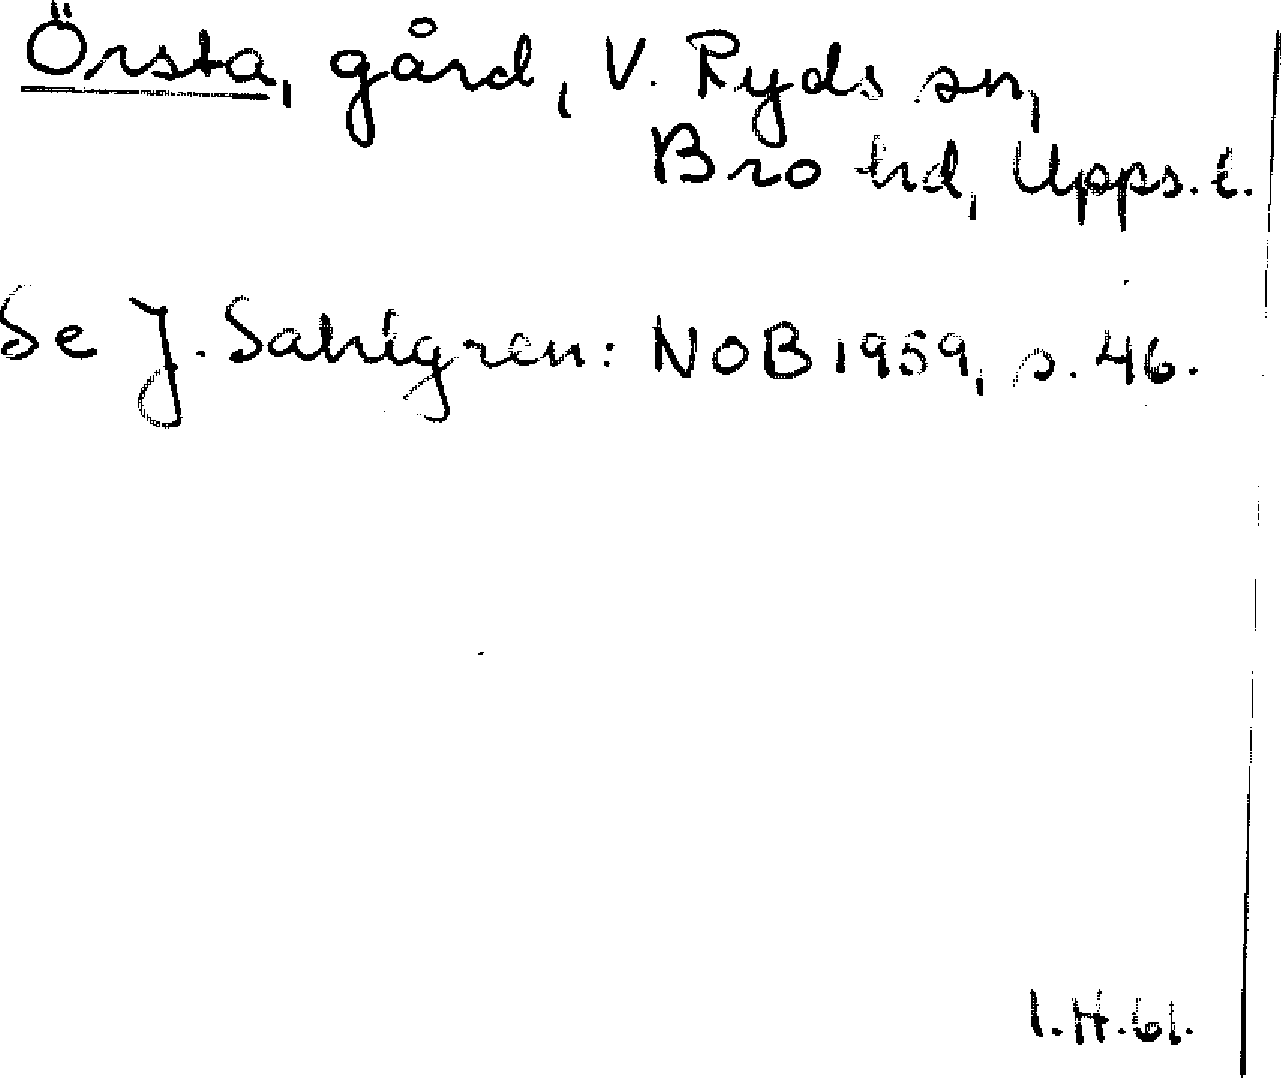 Örsta, gård, V. Ryds sn,
Bro hd, Upps. l.
Se J. Sahlgren: NoB 1959, s. 46.
I.H.61.